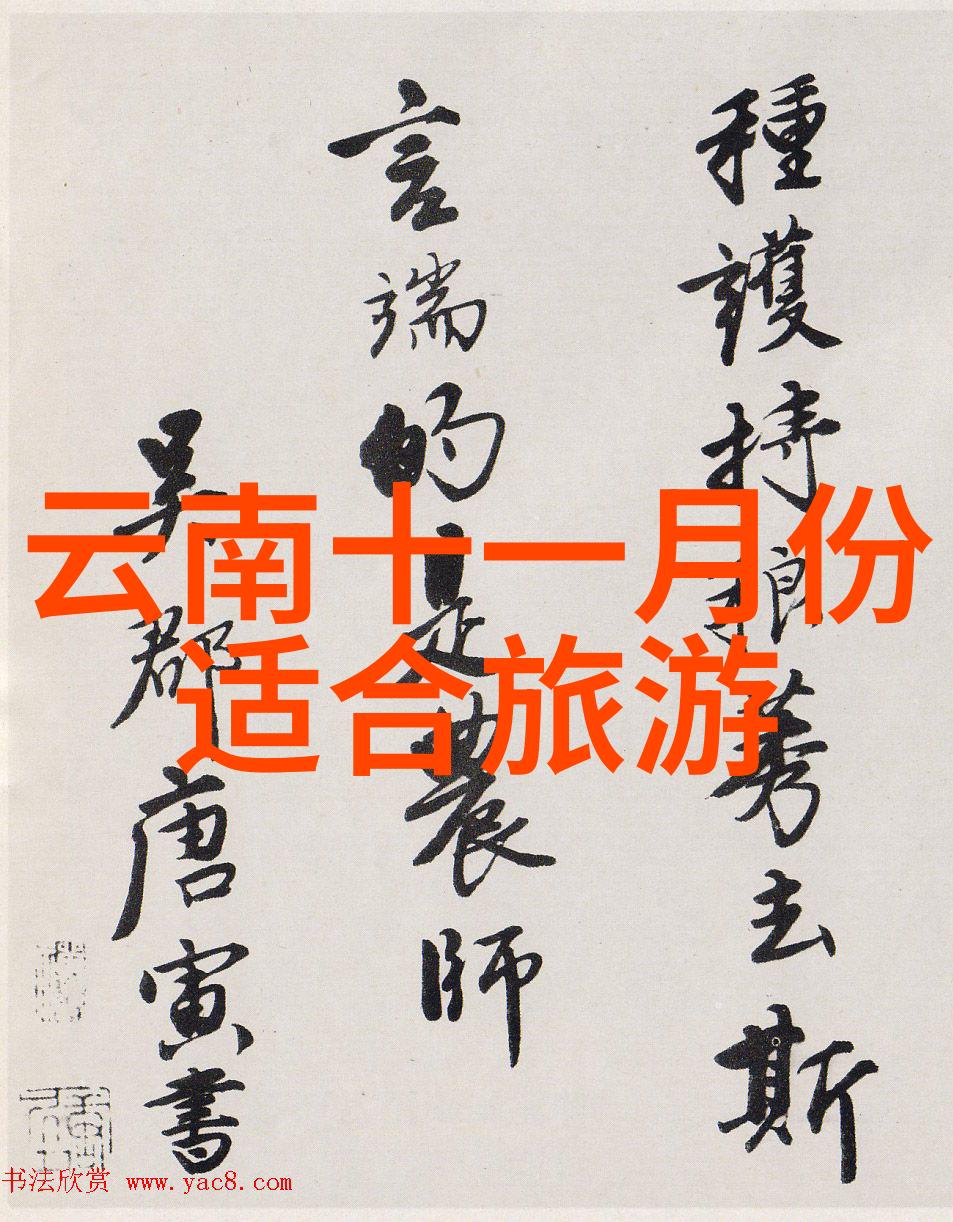 種護持稂莠去斯
言端的是農師
吳郡唐寅書
云南十一月份
适合旅游
书法欣赏 www.yac8.com